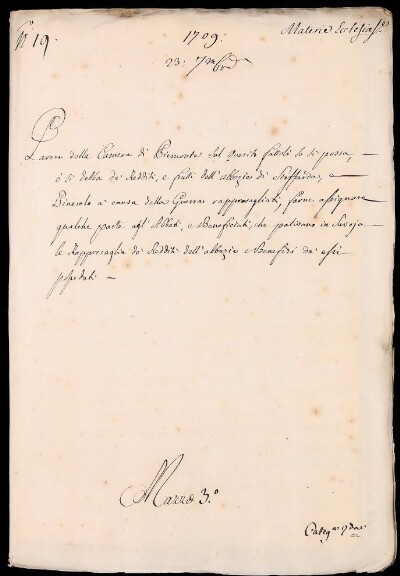 N 19.
1709.
Materie Ecclesiast.e
23. 7mbre
Parere della Camera di Piemonte sul quesito fattoli se si possa,
ò si debba de' Redditi, e frutti dell'abbazie di Staffarda, e
Pinerolo a causa della Guerra rappresagliati, farne assignare
qualche parte agl'Abbati, e Beneficiati, che patiscono in Savoja
le Rappresaglie de' Redditi dell'abbazie e Benefizi da essi
posseduti
Mazzo 3.o
Categ.a